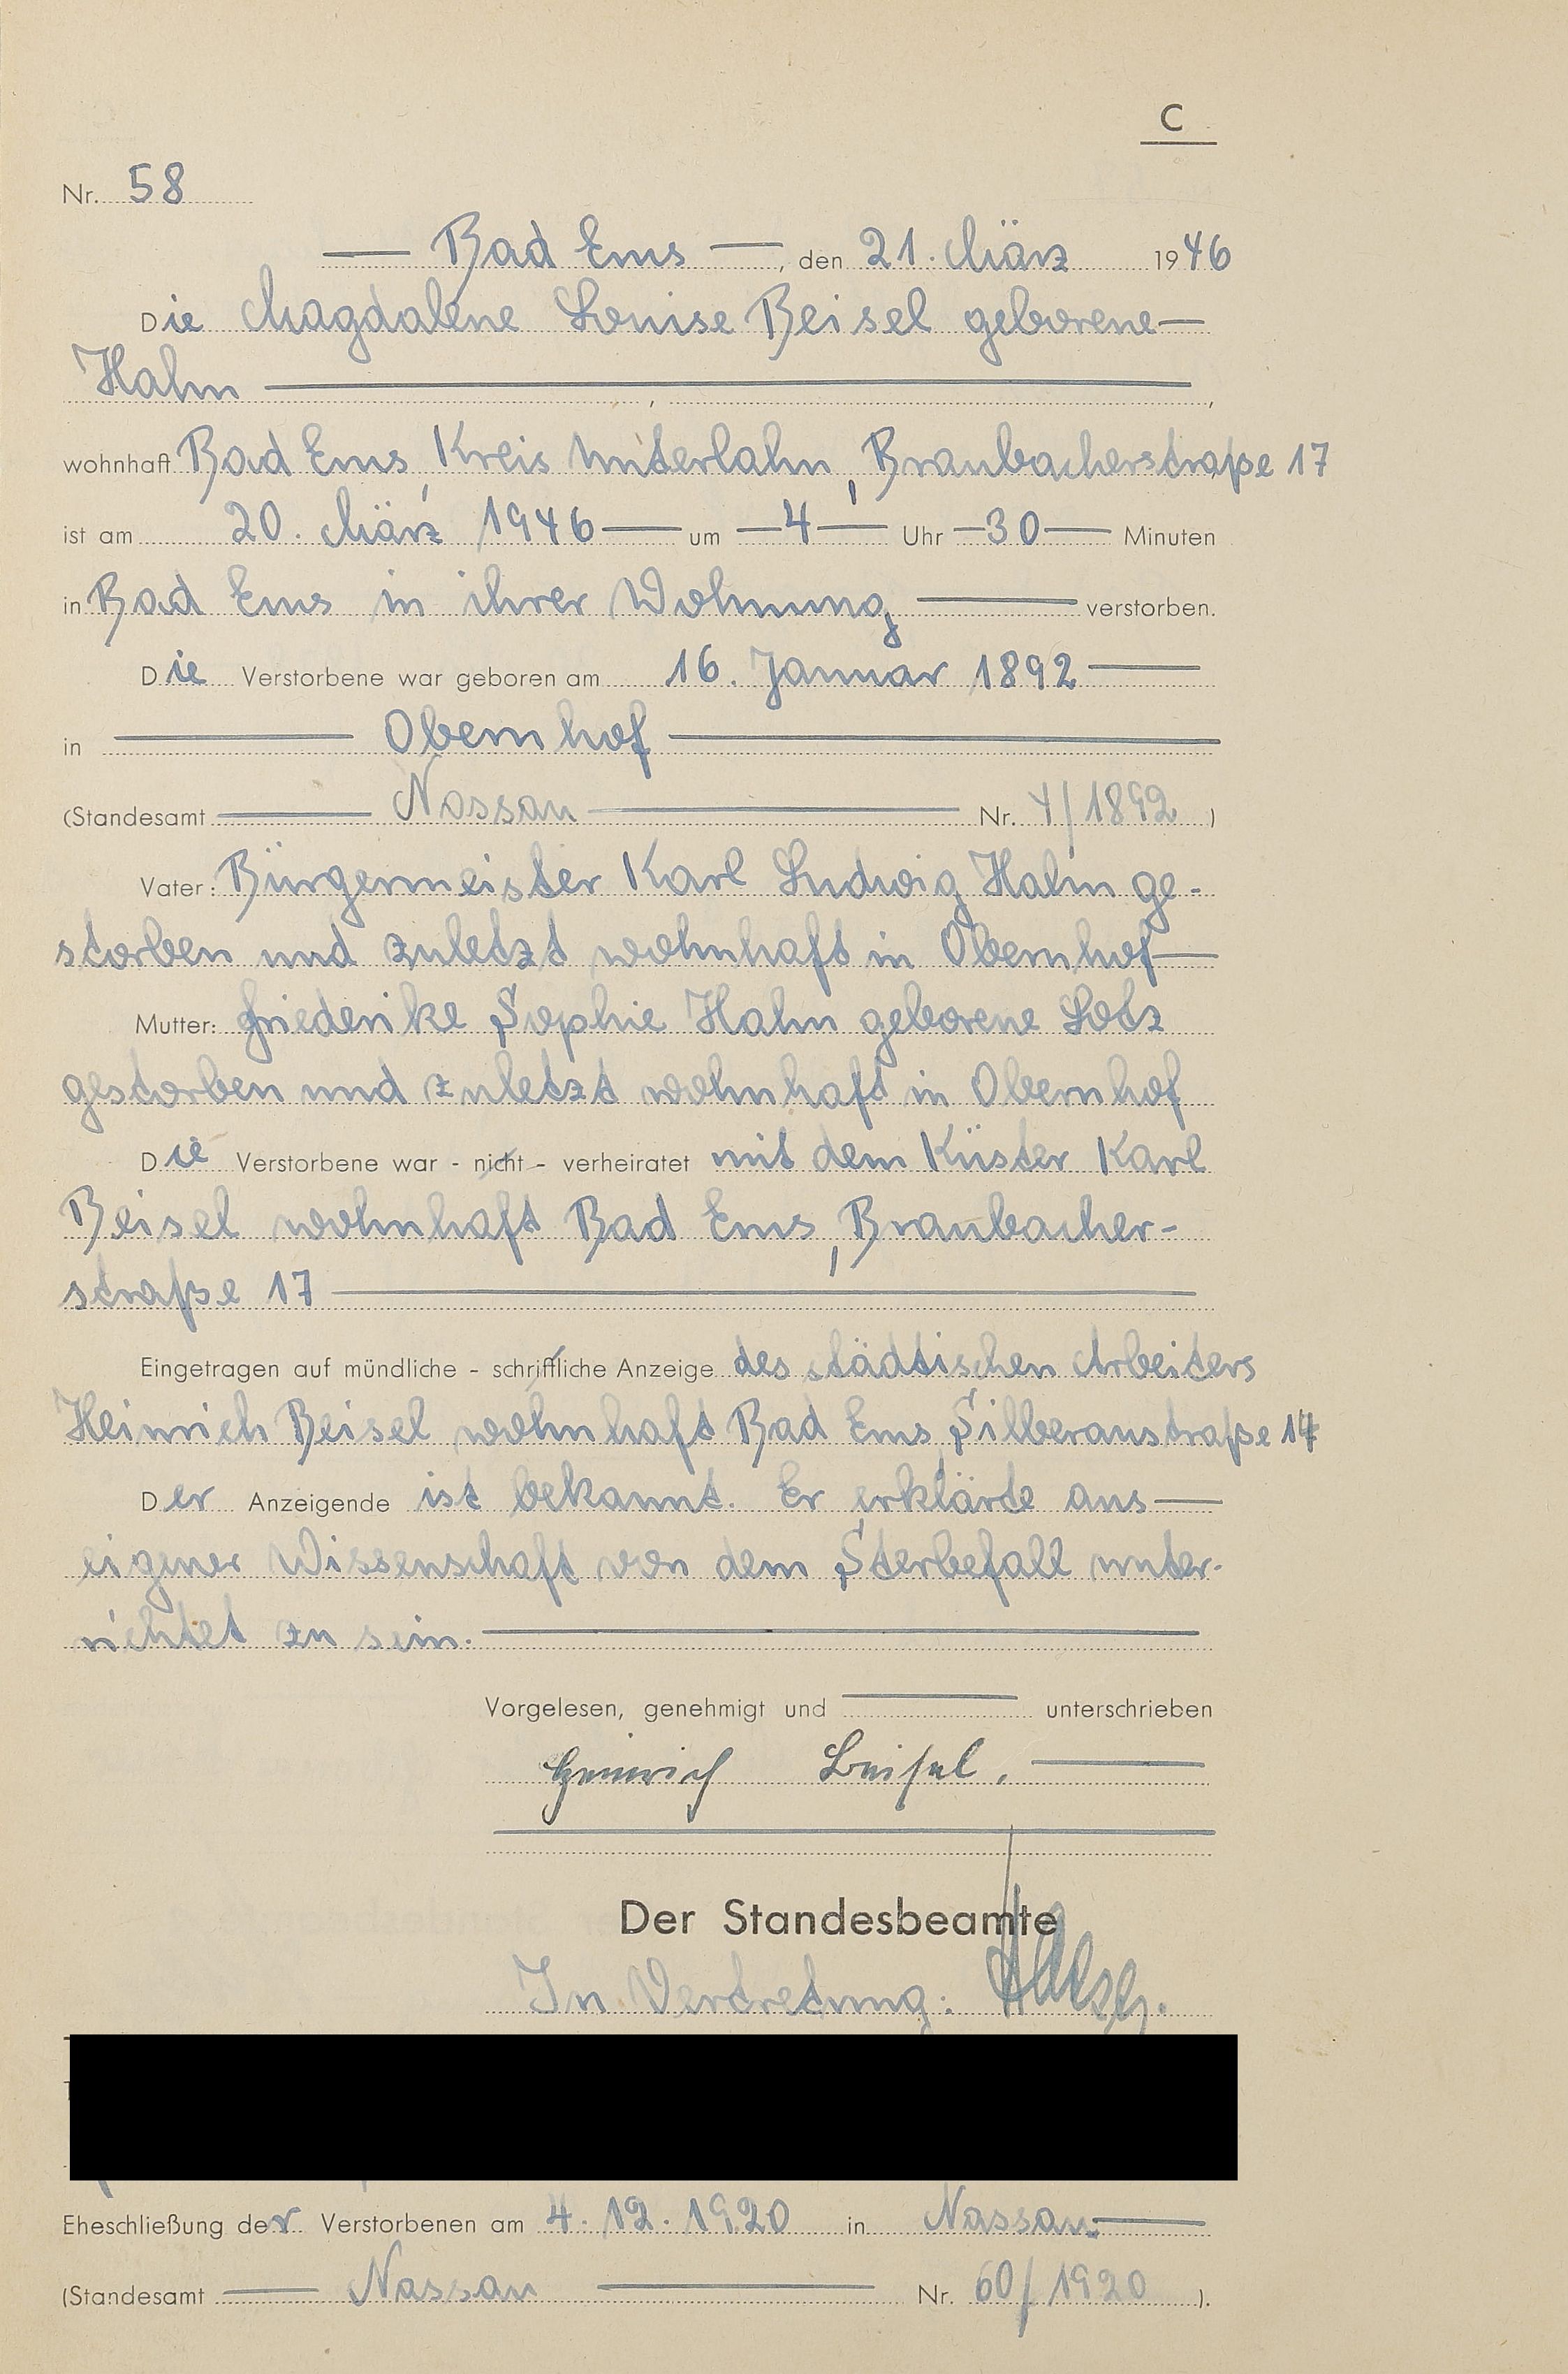 C
Nr. 58
Bad Ems, den 21. März 1946
Die Magdalene Louise Beisel geborene
Hahn
wohnhaft Bad Ems, Kreis Unterlahn, Braubacherstraße 17
ist am 20. März 1946 um 4 Uhr 30 Minuten
in Bad Ems in ihrer Wohnung verstorben.
Die Verstorbene war geboren am 16. Januar 1892
in Obernhof
(Standesamt Nassau Nr. /1892)
Vater: Bürgermeister Karl Ludwig Hahn ge-
storben und zuletzt wohnhaft in Obernhof
Mutter: Friederike Sophie Hahn geborene Lotz
gestorben und zuletzt wohnhaft in Obernhof
Die Verstorbene war - nicht - verheiratet mit dem Küster Karl
Beisel wohnhaft Bad Ems, Braubacher-
straße 17
Eingetragen auf mündliche - schriftliche Anzeige des städtischen Arbeiters
Heinrich Beisel wohnhaft Bad Ems, Silberaustraße 14
Der Anzeigende ist bekannt. Er erklärte aus
eigener Wissenschaft von dem Sterbefall unter-
richtet zu sein.
Vorgelesen, genehmigt und unterschrieben
Heinrich Beisel.
Der Standesbeamte
In Vertretung:
Eheschließung der Verstorbenen am 4.12.1920 in Nassau
(Standesamt Nassau Nr. 60/1920).